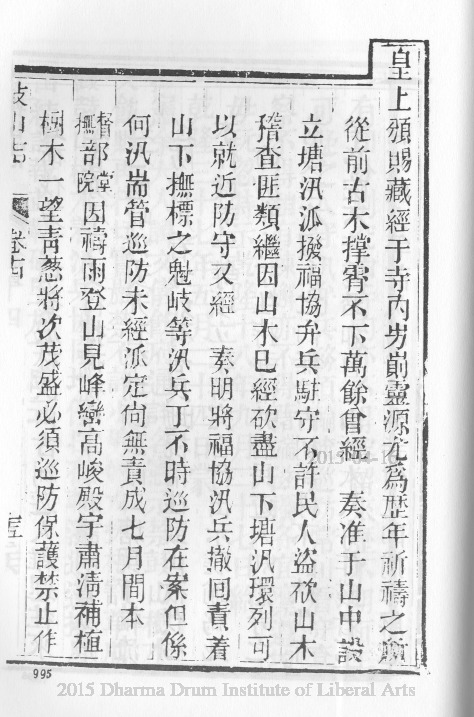 皇上頒賜藏經于寺內屴崱靈源尤爲歷年祈禱之所
從前古木撑霄不下萬餘曾經 奏准于山中設
立塘汛派撥福協弁兵駐守不許民人盜砍山木
稽查匪類繼因山木已經砍盡山下塘汛環列可
以就近防守又經 奏明將福協汛兵撤回責着
山下撫標之魁岐等汛兵丁不時巡防在案但係
何汛耑管巡防未經派定尙無責成七月間本
督部堂撫部院因禱雨登山見峰巒高峻殿宇肅淸補植
樹木一望靑葱將次茂盛必須巡防保護禁止作
鼓山志 卷十四
995
2015 Dharma Drum Institute of Liberal Arts